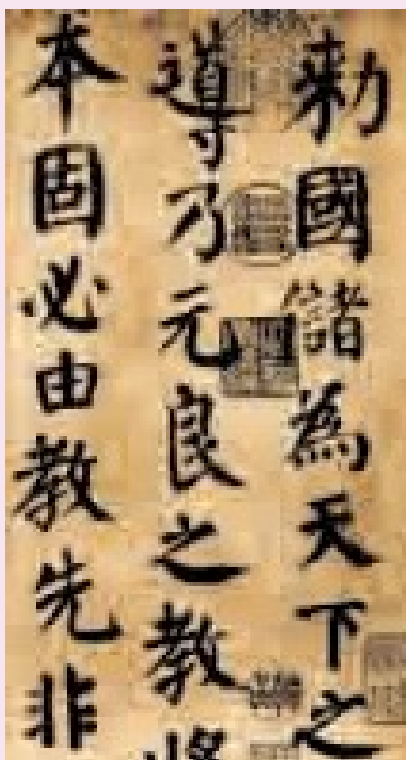 勅國儲為天下之
導乃元良之教將
本固必由教先非